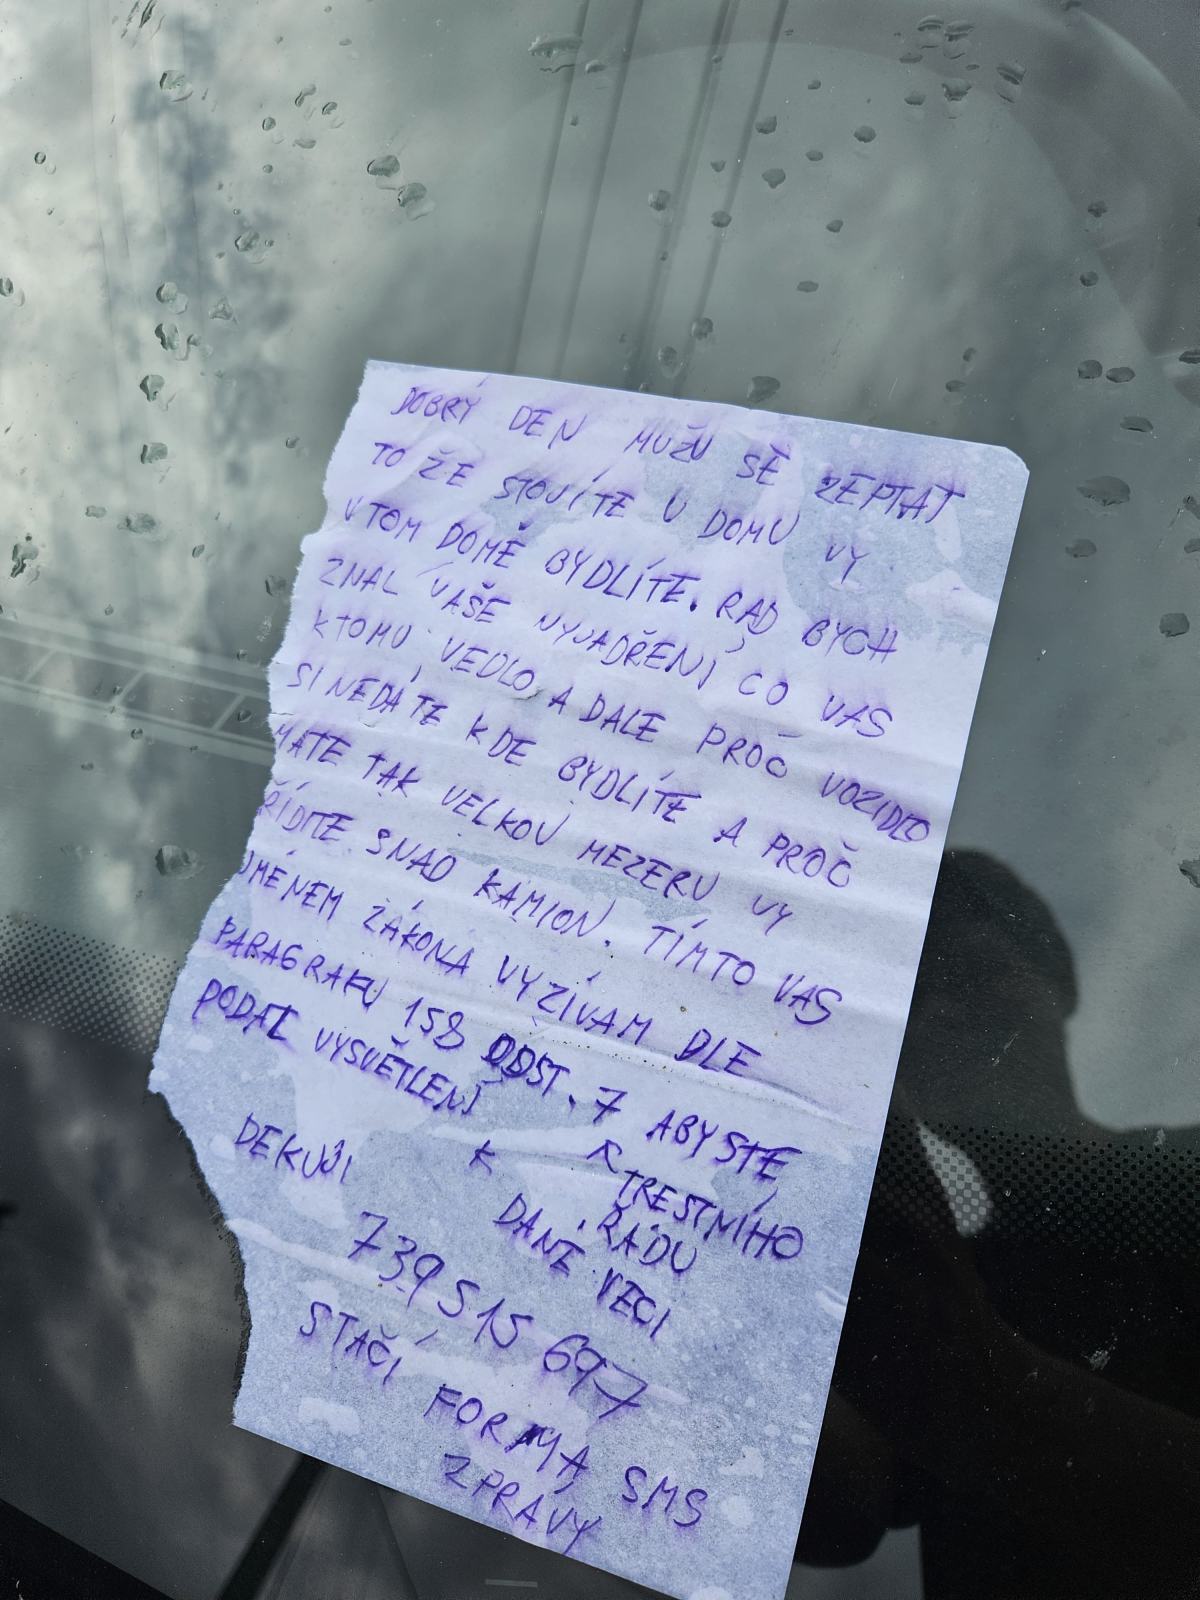 DOBRÝ DEN MUŽU SE ZEPTAT
TO ŽE STOJÍTE U DOMU VY
V TOM DOMĚ BYDLÍTE. RÁD BYCH
ZNAL VAŠE VYJADŘENÍ CO VAS
KTOMU VEDLO, A DALE PROČ VOZIDLO
SI NEDÁTE KDE BYDLÍTE A PROČ
MATE TAK VELKOU MEZERU VY
ŘÍDITE SNAD KAMION. TÍMTO VAS
JMÉNEM ZÁKONA VYZÍVAM DLE
PARAGRAKU 158 ODST. 7 ABYSTE
PODAL VYSVĚTLENÍ
TRESTNÍHO
ŘÁDU
K
DANÉ VĚCI
DEKUJI
739 515 697
STAČÍ FORMA SMS
ZPRÁVY